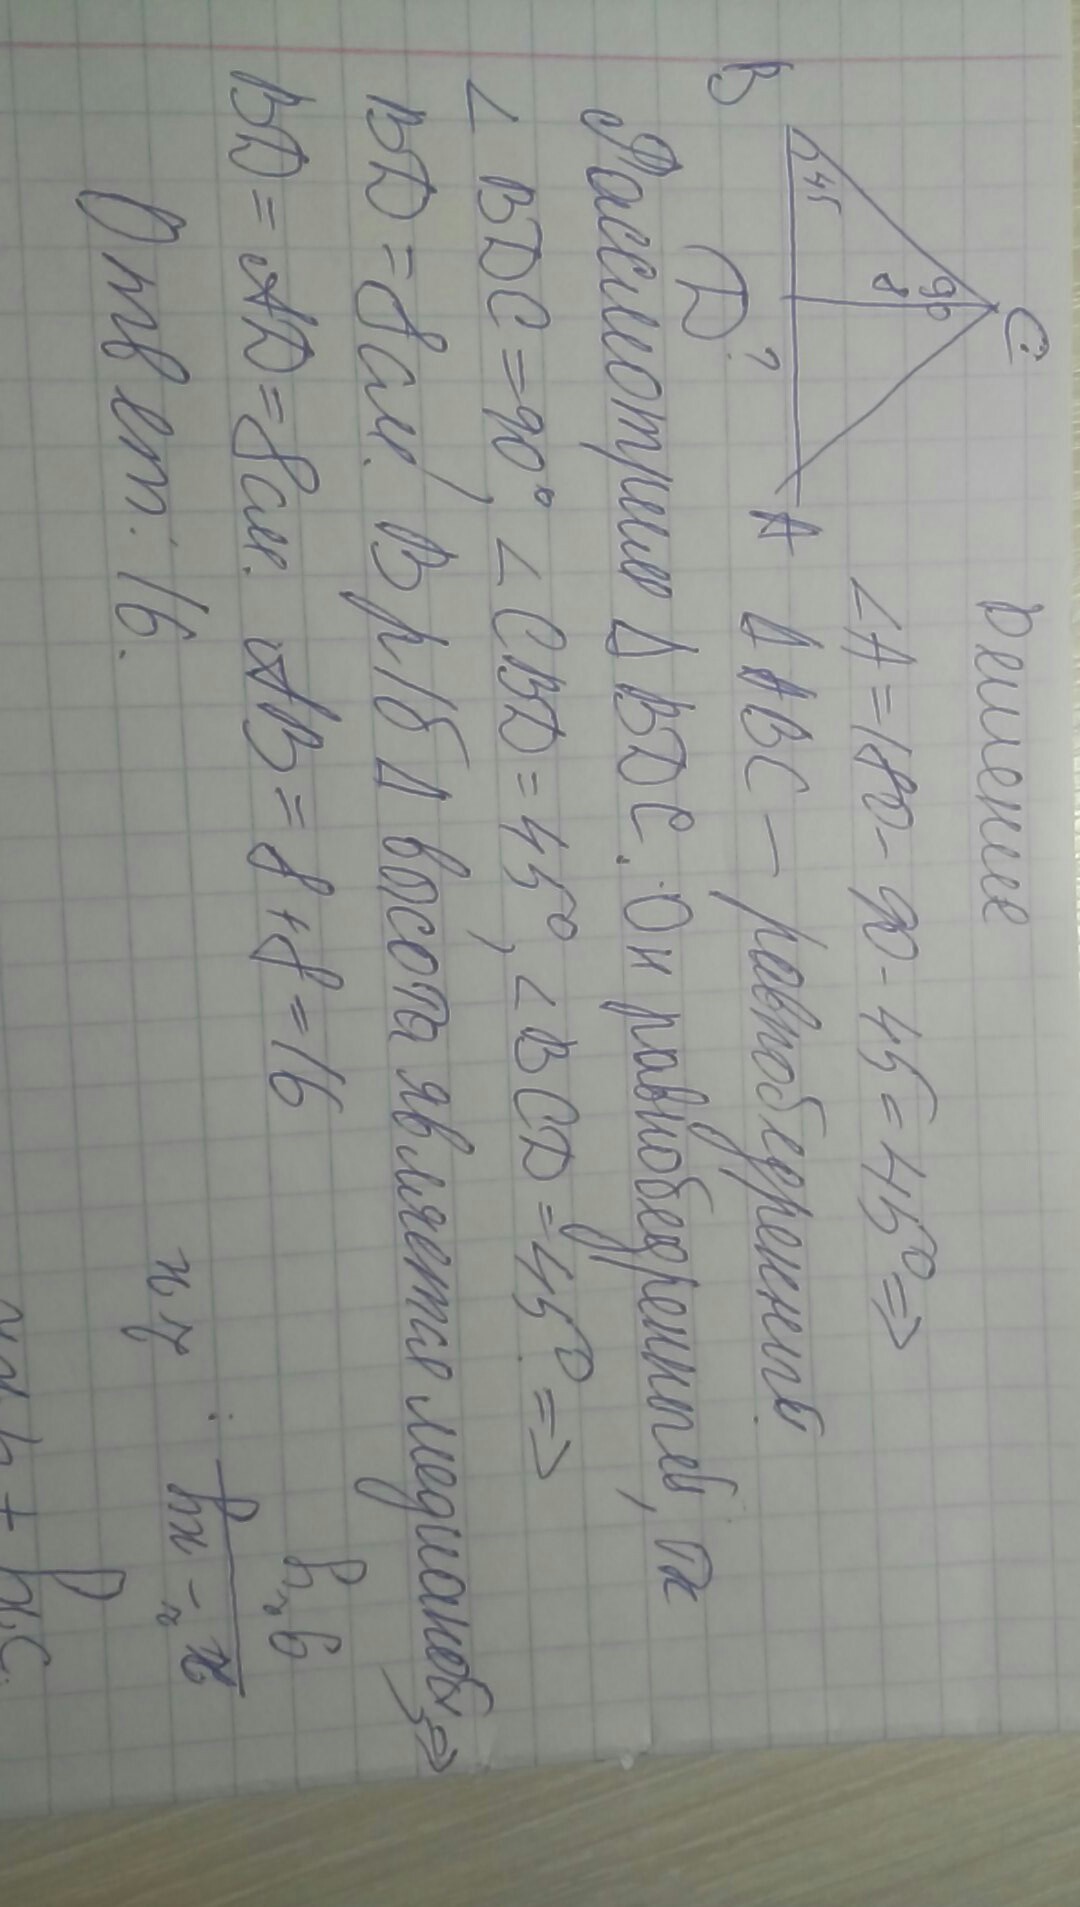 Решение
C
90
8
45
B
D
?
A
∠A = 180 - 90 - 45 = 45° =>
Δ ABC — равнобедренный
Рассмотрим Δ BDC. Он равнобедренный, тк
∠ BDC = 90°, ∠ CBD = 45°, ∠ BCD = 45° =>
BD = 8 см. В р/б Δ восота является медианой =>
BD = AD = 8 см. AB = 8 + 8 = 16
Ответ: 16.